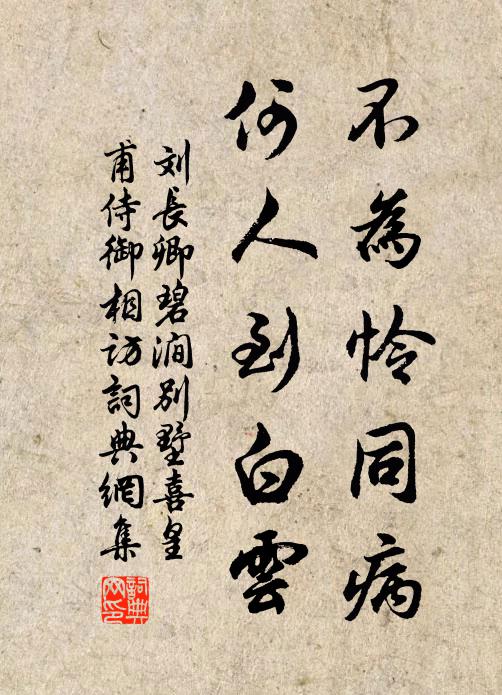 不為憐同病
何人到白雲
刘長卿碧澗別墅喜皇
甫侍御相訪詞典網集
詞典網印